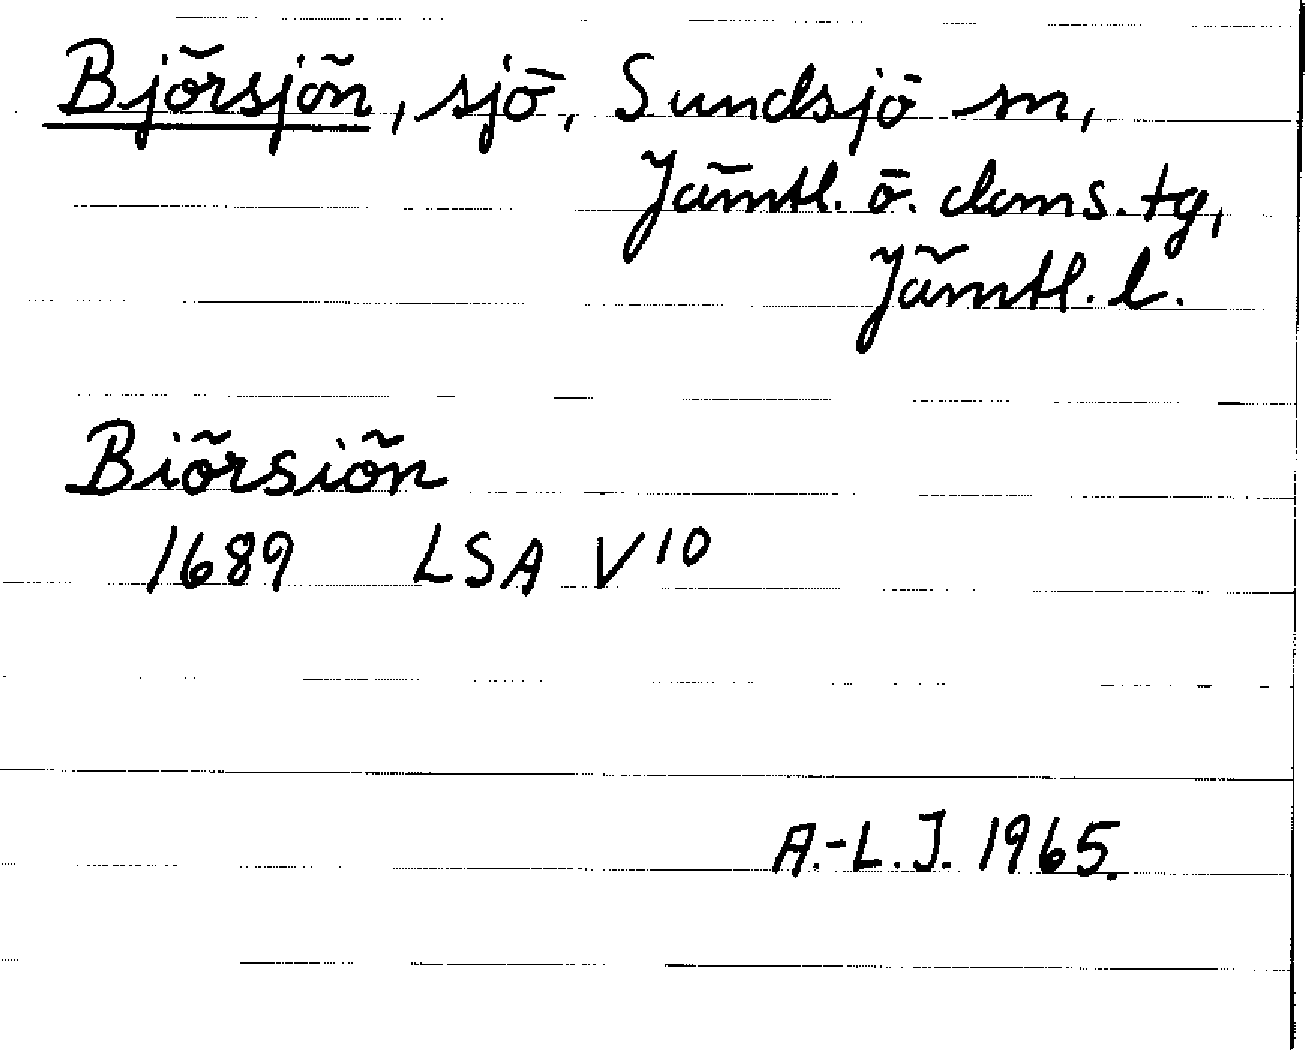 Björsjön, sjö, Sundsjö sn,
Jämtl. ö. doms. tg,
Jämtl. l.
Biörsiön
1689 LSA V10
A.-L. J. 1965.